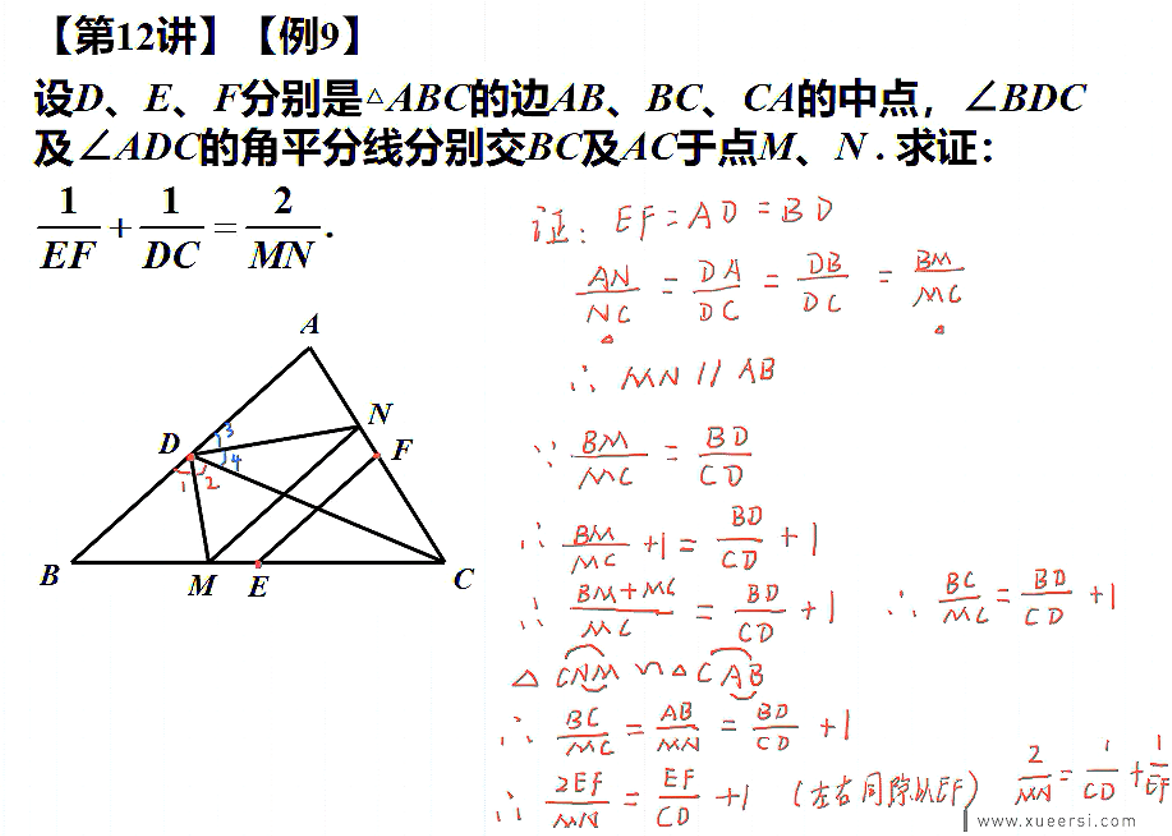 【第12讲】【例9】
设D、E、F分别是△ABC的边AB、BC、CA的中点，∠BDC
及∠ADC的角平分线分别交BC及AC于点M、N．求证：
1/EF + 1/DC = 2/MN．
证: EF = AD = BD
AN/NC = DA/DC = DB/DC = BM/MC
∴ MN // AB
∵ BM/MC = BD/CD
∴ BM/MC + 1 = BD/CD + 1
∴ (BM+MC)/MC = BD/CD + 1 ∴ BC/MC = BD/CD + 1
△CNM ∽ △CAB
∴ BC/MC = AB/MN = BD/CD + 1
∴ 2EF/MN = EF/CD + 1 (左右同除以EF) 2/MN = 1/CD + 1/EF
A
N
D 3 F
4
1 2
B M E C
www.xueersi.com